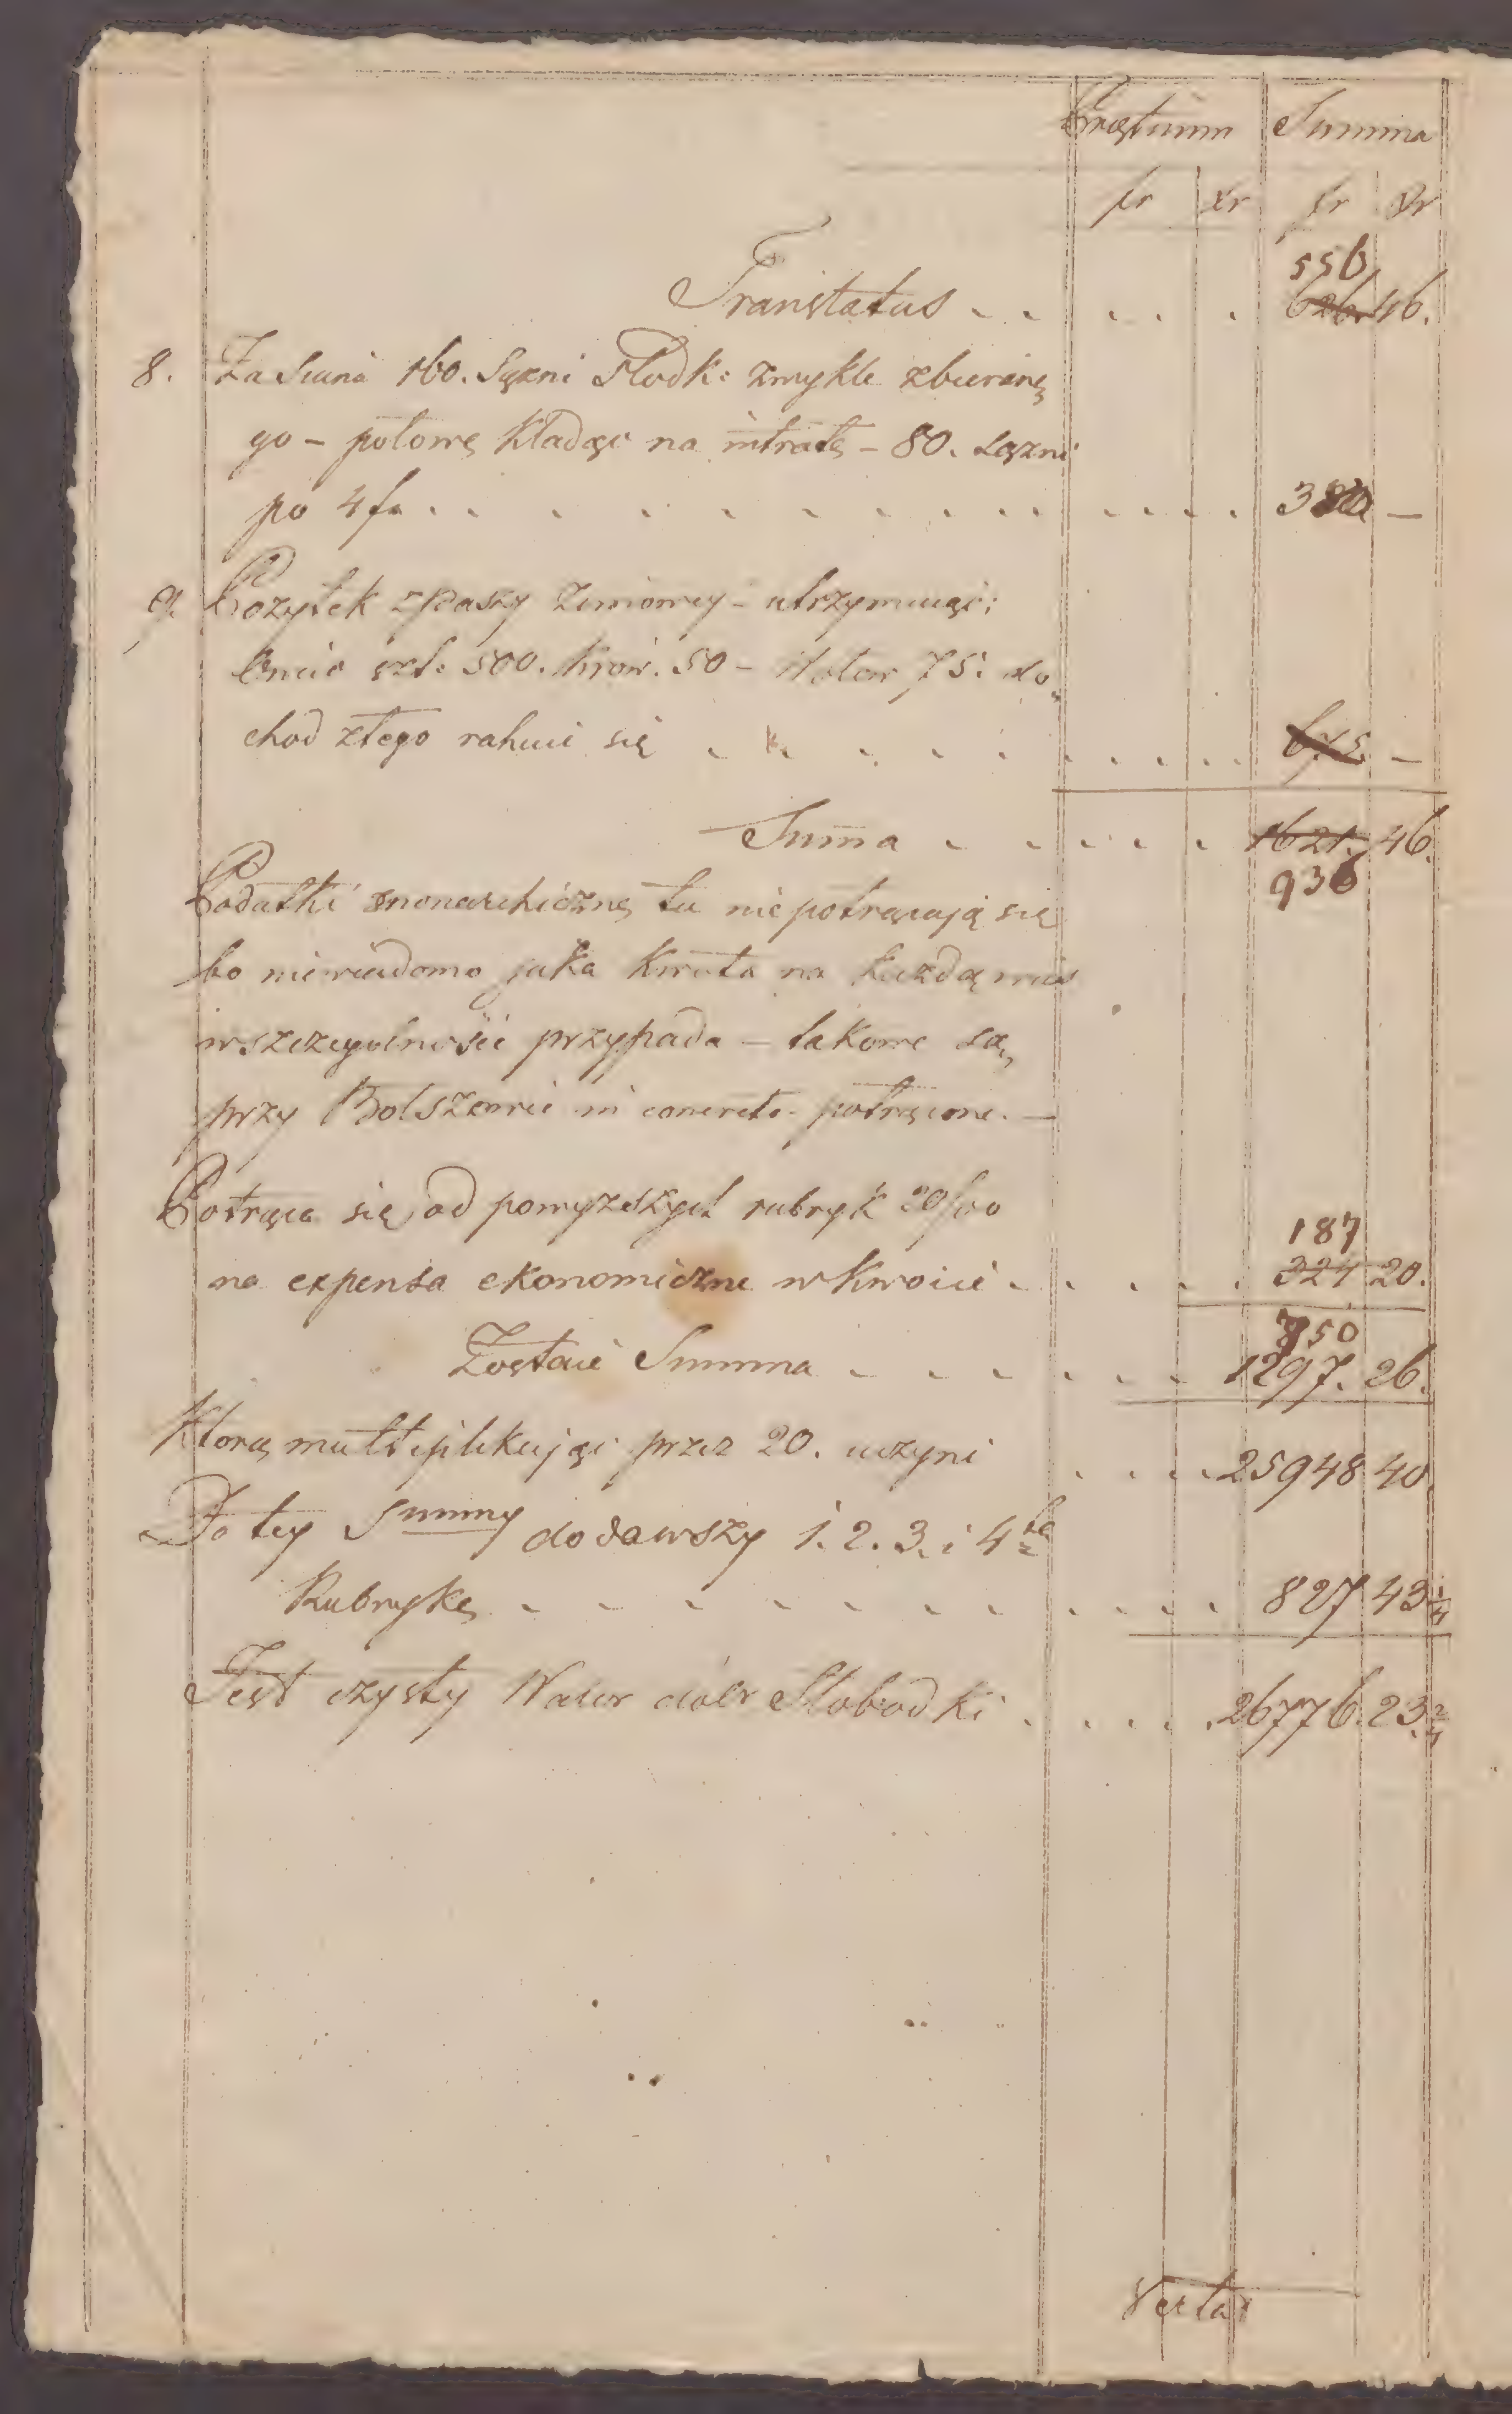 Prǫstium Summa
fr xr fr xr
556
Transtatus . . . . . . 626. 46.
8. Za Siana 160. Sążni Słodk: zwykle zbieranę
go – połowę kładąc na intratę – 80. sążni
po 4 fr . . . . . . . . . . . 380 –
9. Pożytek z paszy zimowey – utrzymuiąc:
Owiec szt. 500. krow. 50 – 75: do
chod ztego rahuie się . . . . . . 675 –
Suma . . . . . 1621. 46.
936
Podatki monarchicznę tu nie potrącają się
bo niewiadomo jaka kwota na każdą wieś
wszczegulności przypada – takowe są
przy Bolszowie in concreto potrącone. –
Potrąca się od powyższych rubryk 20/00
187
na expensa ekonomiczne w kwocie . . . . 324 20.
750
Zostaie Summa . . . . . 1297. 26.
Ktorą multiplikując przez 20. uczyni . . . . 25948 40.
Do tey Summy dodawszy 1. 2. 3. i 4tą
Rubrykę . . . . . . . . . 827 43 1/4
Jest czysty Walor dóbr Słobodki . . . . . 26776. 23. 2/4
Vertat